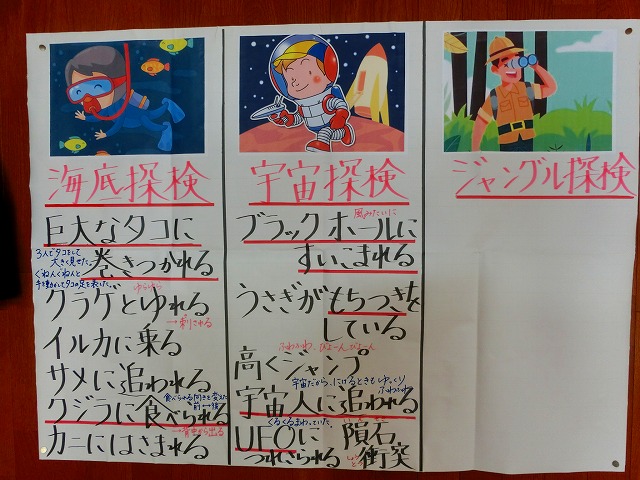 海底探検
巨大なタコに
巻きつかれる
3人でタコをして
大きく見せた。
ぐねんぐねんと
手を動かしてタコの足を表した。
ゆらゆら
クラゲとゆれる
→刺される
イルカに乗る
サメに追われる
食べられる向きを変えた
前→横
クジラに食べられる
→背中から出る
カニにはさまれる
宇宙探検
風みたいに
ブラックホールに
すいこまれる
うさぎがもちつきを
している
ふわふわ、ぴょーんぴょーん
高くジャンプ
宇宙だから、にげるときもゆっくり
ふわふわ
宇宙人に追われる
くるくるまわっていた。
UFOに
つれさられる
隕石
衝突
ジャングル探検